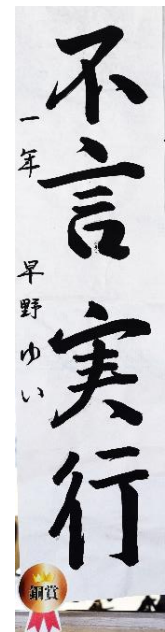 不言実行
一年 早野ゆい
銅賞